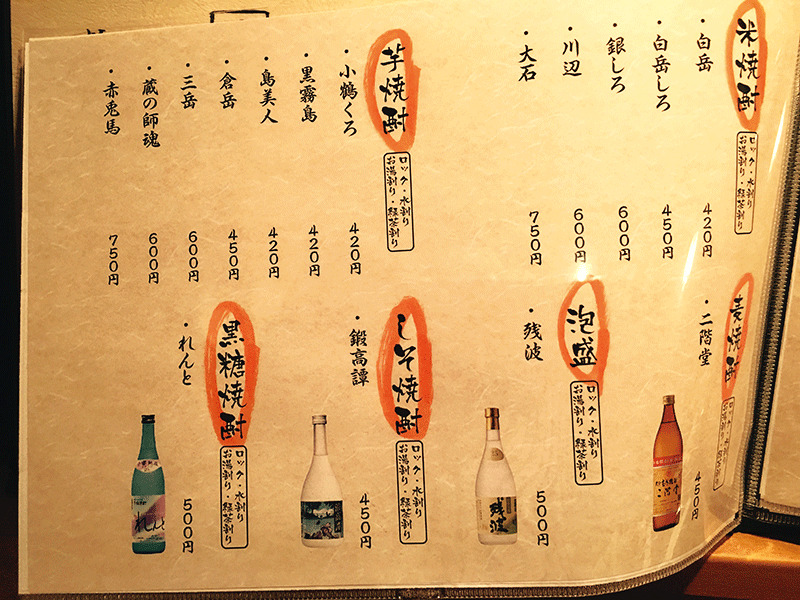 米焼酎
ロック・水割り
お湯割り・緑茶割り
・白岳
420円
・白岳しろ
450円
・銀しろ
600円
・川辺
600円
・大石
750円
芋焼酎
ロック・水割り
お湯割り・緑茶割り
・小鶴くろ
420円
・黒霧島
420円
・島美人
420円
・倉岳
450円
・三岳
600円
・蔵の師魂
600円
・赤兎馬
750円
麦焼酎
ロック・水割り
お湯割り・緑茶割り
・二階堂
450円
二階堂
泡盛
ロック・水割り
お湯割り・緑茶割り
・残波
500円
残波
しそ焼酎
ロック・水割り
お湯割り・緑茶割り
・鍛高譚
450円
黒糖焼酎
ロック・水割り
お湯割り・緑茶割り
・れんと
500円
れんと